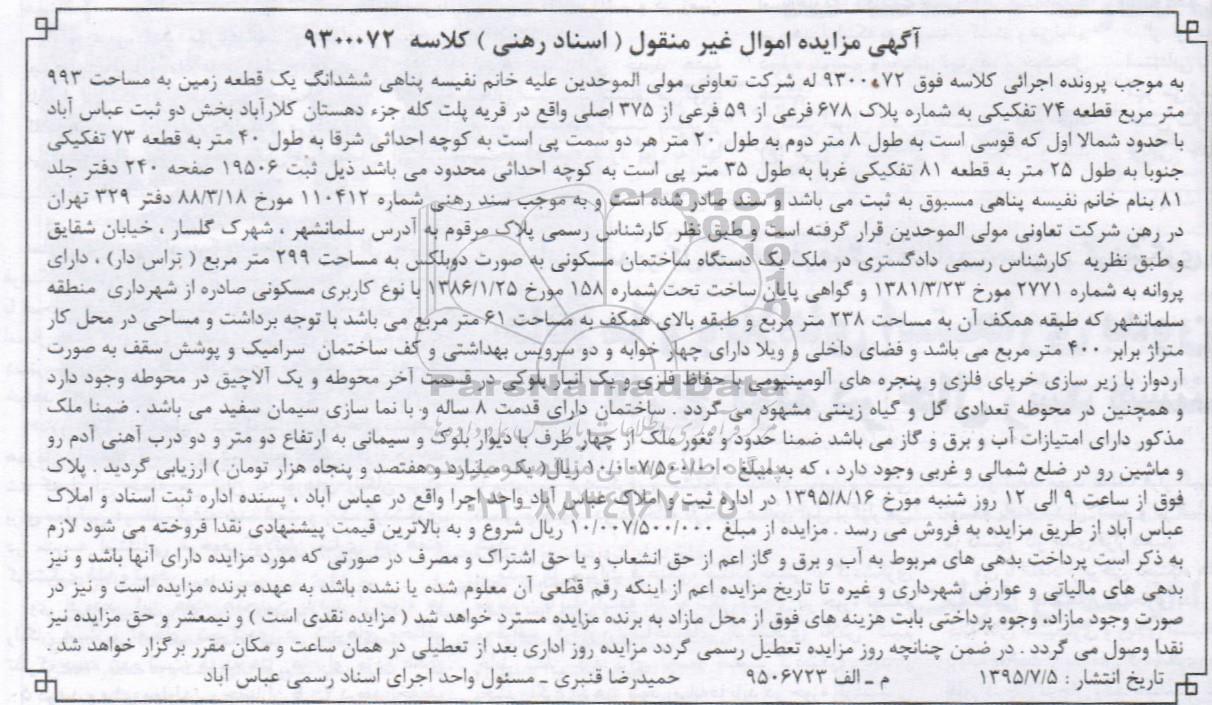 آگهی مزایده اموال غیر منقول ( اسناد رهنی ) کلاسه ۹۳۰۰۰۷۲
به موجب پرونده اجرائی کلاسه فوق ۹۳۰۰۰۷۲ له شرکت تعاونی مولی الموحدین علیه خانم نفیسه پناهی ششدانگ یک قطعه زمین به مساحت ۹۹۳
متر مربع قطعه ۷۴ تفکیکی به شماره پلاک ۶۷۸ فرعی از ۵۹ فرعی از ۳۷۵ اصلی واقع در قریه پلت کله جزء دهستان کلارآباد بخش دو ثبت عباس آباد
با حدود شمالا اول که قوسی است به طول ۸ متر دوم به طول ۲۰ متر هر دو سمت پی است به کوچه احداثی شرقا به طول ۴۰ متر به قطعه ۷۳ تفکیکی
جنوبا به طول ۲۵ متر به قطعه ۸۱ تفکیکی غربا به طول ۳۵ متر پی است به کوچه احداثی محدود می باشد ذیل ثبت ۱۹۵۰۶ صفحه ۲۴۰ دفتر جلد
۸۱ بنام خانم نفیسه پناهی مسبوق به ثبت می باشد و سند صادر شده است و به موجب سند رهنی شماره ۱۱۰۴۱۲ مورخ ۸۸/۳/۱۸ دفتر ۳۲۹ تهران
در رهن شرکت تعاونی مولی الموحدین قرار گرفته است و طبق نظر کارشناس رسمی پلاک مرقوم به آدرس سلمانشهر ، شهرک گلسار ، خیابان شقایق
طبق نظریه کارشناس رسمی دادگستری در ملک یک دستگاه ساختمان مسکونی به صورت دوبلکس به مساحت ۲۹۹ متر مربع ( تراس دار) ، دارای
پروانه به شماره ۲۷۷۱ مورخ ۱۳۸۱/۳/۲۳ و گواهی پایان ساخت تحت شماره ۱۵۸ مورخ ۱۳۸۶/۱/۲۵ با نوع کاربری مسکونی صادره از شهرداری منطقه
سلمانشهر که طبقه همکف آن به مساحت ۲۳۸ متر مربع و طبقه بالای همکف به مساحت ۶۱ متر مربع می باشد با توجه برداشت و مساحی در محل کار
متراژ برابر ۴۰۰ متر مربع می باشد و فضای داخلی و ویلا دارای چهار خوابه و دو سرویس بهداشتی و کف ساختمان سرامیک و پوشش سقف به صورت
آردواز با زیر سازی خرپای فلزی و پنجره های آلومینیومی با حفاظ فلزی و یک انبار بلوکی در قسمت آخر محوطه و یک آلاچیق در محوطه وجود دارد
و همچنین در محوطه تعدادی گل و گیاه زینتی مشهود می گردد . ساختمان دارای قدمت ۸ ساله و با نما سازی سیمان سفید می باشد . ضمنا ملک
مذکور دارای امتیازات آب و برق و گاز می باشد ضمنا حدود و ثغور ملک از چهار طرف با دیوار بلوک و سیمانی به ارتفاع دو متر و دو درب آهنی آدم رو
و ماشین رو در ضلع شمالی و غربی وجود دارد ، که به مبلغ ۱۰/۰۰۷/۵۰۰/۰۰۰ ریال( یک میلیارد و هفتصد و پنجاه هزار تومان ) ارزیابی گردید . پلاک
فوق از ساعت ۹ الی ۱۲ روز شنبه مورخ ۱۳۹۵/۸/۱۶ در اداره ثبت و املاک عباس آباد واحد اجرا واقع در عباس آباد ، پسنده اداره ثبت اسناد و املاک
عباس آباد از طریق مزایده به فروش می رسد . مزایده از مبلغ ۱۰/۰۰۷/۵۰۰/۰۰۰ ریال شروع و به بالاترین قیمت پیشنهادی نقدا فروخته می شود لازم
به ذکر است پرداخت بدهی های مربوط به آب و برق و گاز اعم از حق انشعاب و یا حق اشتراک و مصرف در صورتی که مورد مزایده دارای آنها باشد و نیز
بدهی های مالیاتی و عوارض شهرداری و غیره تا تاریخ مزایده اعم از اینکه رقم قطعی آن معلوم شده یا نشده باشد به عهده برنده مزایده است و نیز در
صورت وجود مازاد، وجوه پرداختی بابت هزینه های فوق از محل مازاد به برنده مزایده مسترد خواهد شد ( مزایده نقدی است ) و نیمعشر و حق مزایده نیز
نقدا وصول می گردد . در ضمن چنانچه روز مزایده تعطیل رسمی گردد مزایده روز اداری بعد از تعطیلی در همان ساعت و مکان مقرر برگزار خواهد شد .
تاریخ انتشار : ۱۳۹۵/۷/۵ م ـ الف ۹۵۰۶۷۲۳ حمیدرضا قنبری ـ مسئول واحد اجرای اسناد رسمی عباس آباد
ParsNamadData